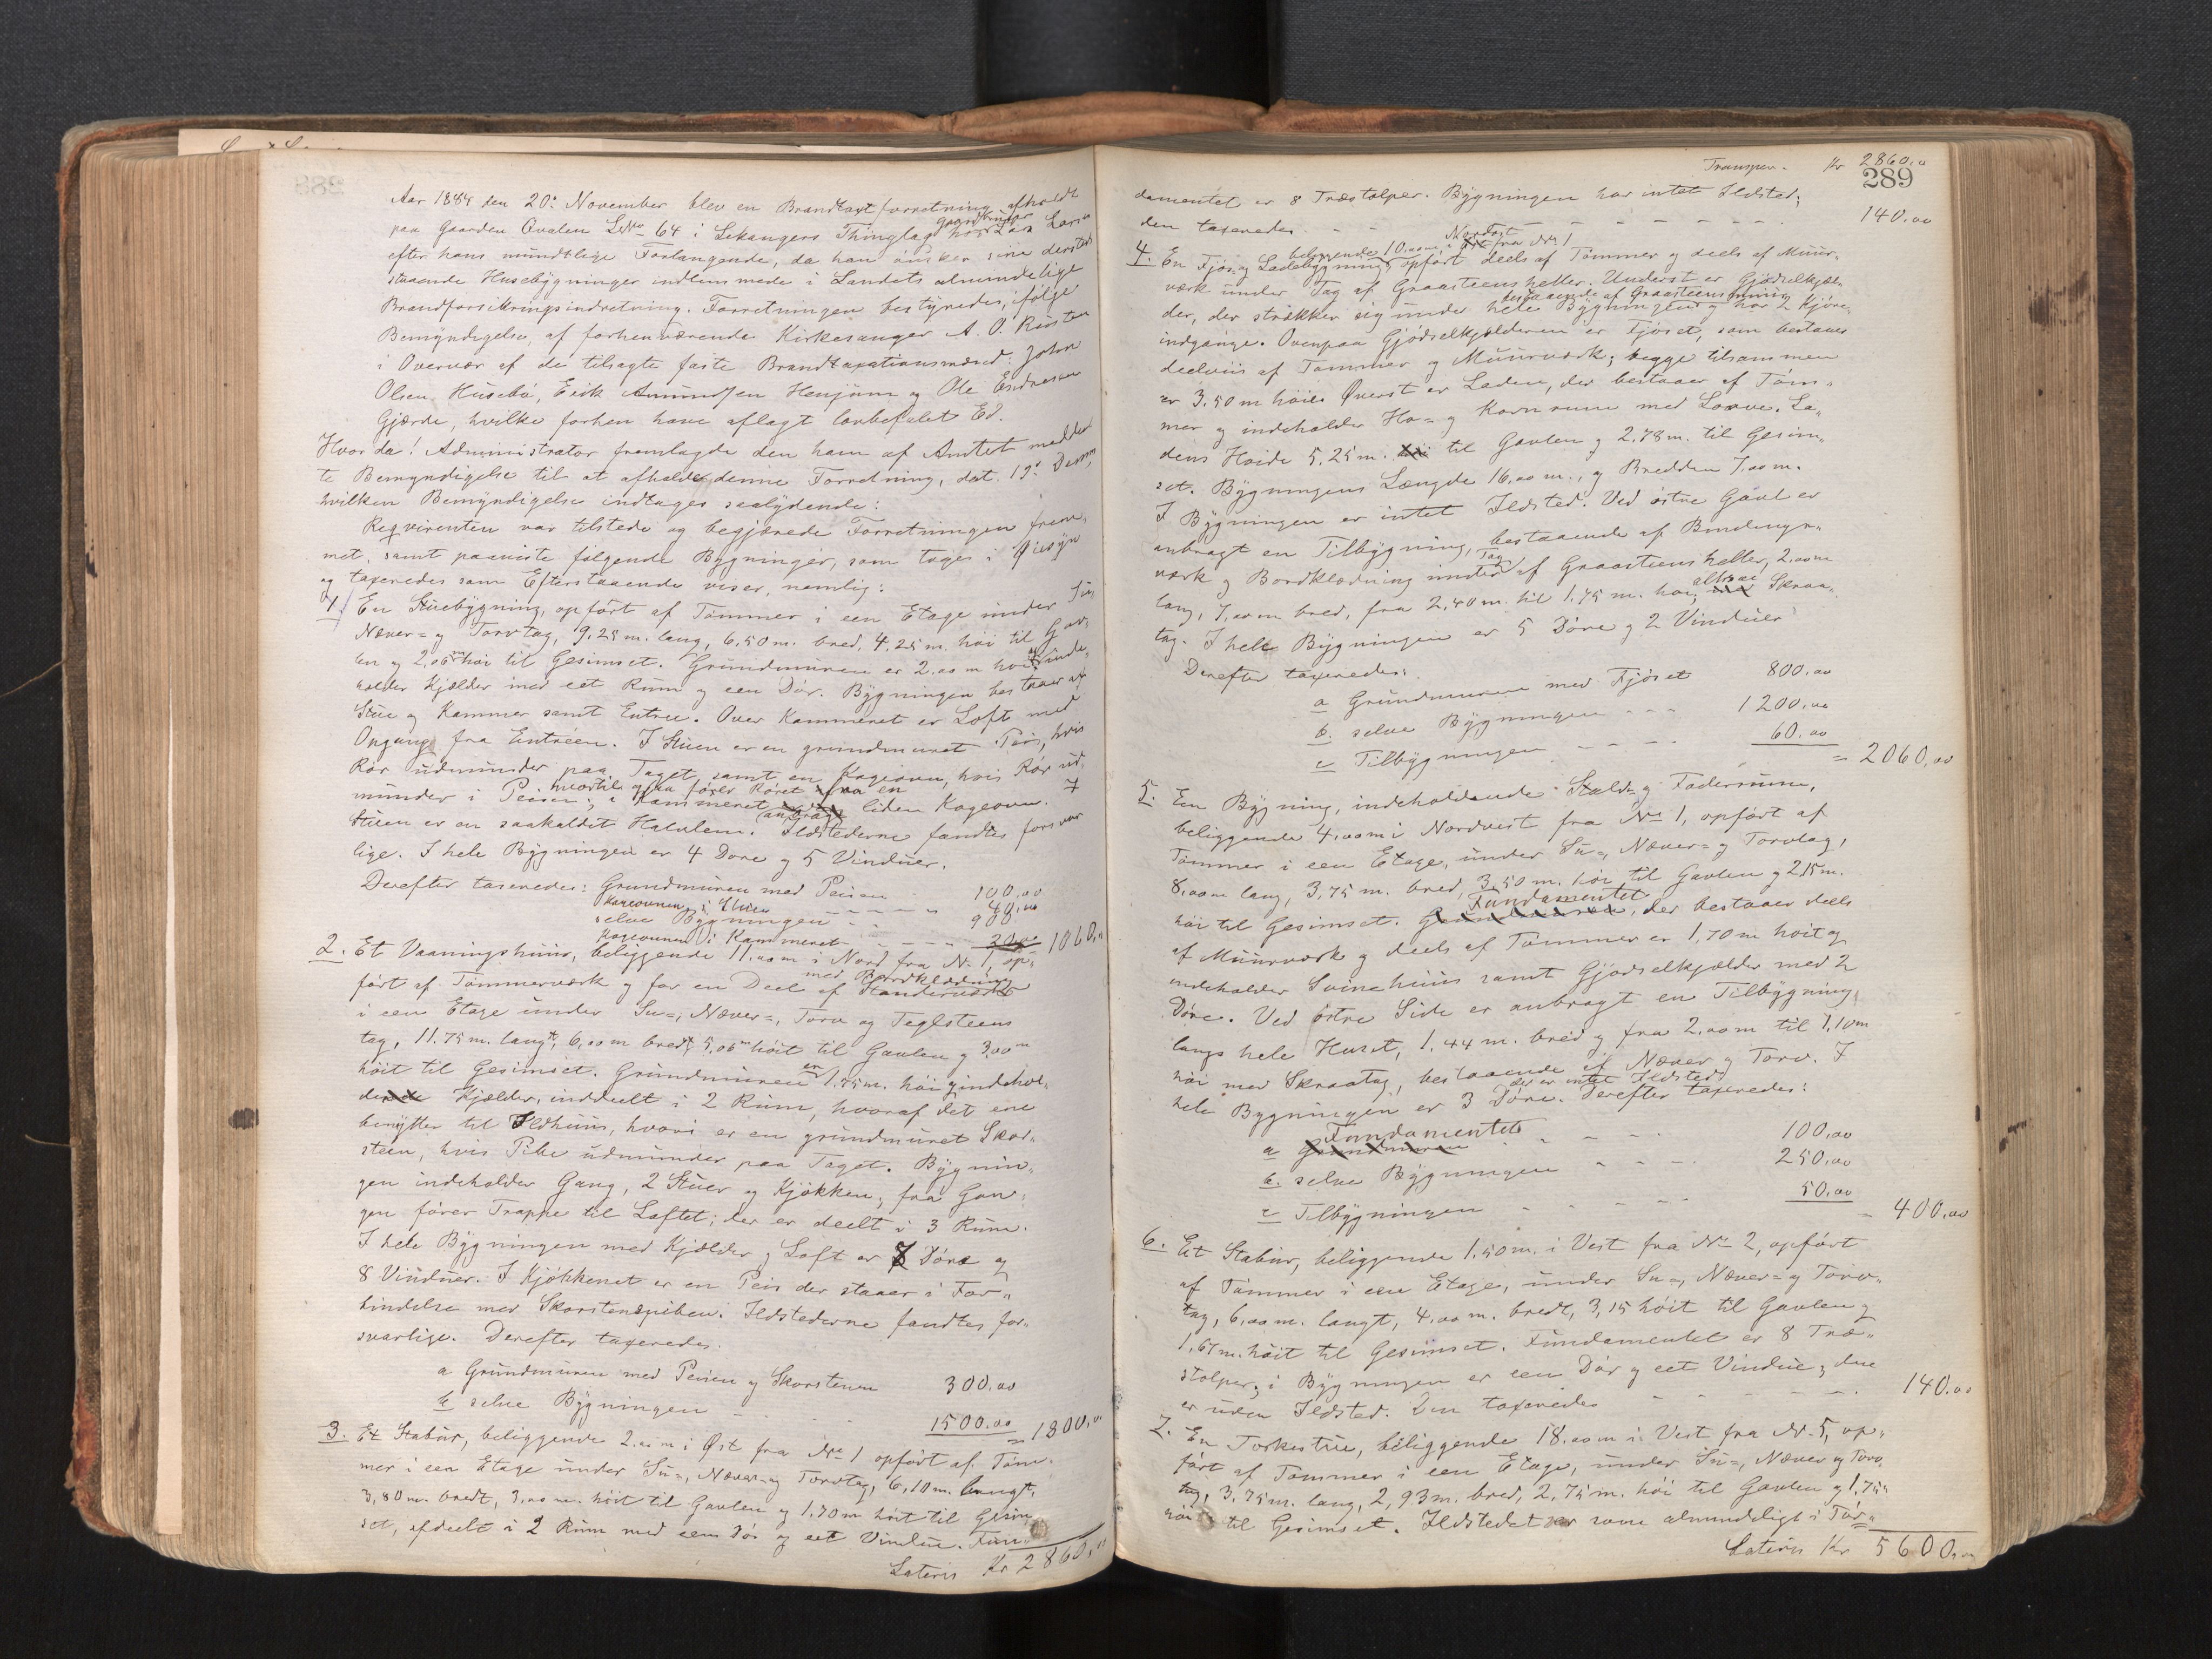 Aar 1884 den 20: November blev en Brandtaxtforretning afholdt
paa Gaarden Qvalen LNo 64 i Lekangers Thinglag hos gaardbruger Lasse Larsen
efter hans mundtlige Forlangende, da han ønsker sine dersteds
staaende Husebygninger indlemmede i Landets almindelige
Brandforsikringsindretning. Forretningen bestyredes, ifølge
Bemyndigelse, af forhenværende Kirkesanger A. O. Husten
i Overvær af de tilsagte faste Brandtaxationsmænd: John
Olsen Husebø, Erik Amundsen Henjum og Ole Endresen
Gjærde, hvilke forhen have aflagt lovbefalet Ed.
Hvor da! Administrator fremlagde den ham af Amtet meddel
te Bemyndigelse til at afholde denne Forretning, dat. 19: Dennes,
hvilken Bemyndigelse indtages saalydende:
Reqvirenten var tilstede og begjærede Forretningen frem„
met, samt paaviste følgende Bygninger, som toges i Øiesyn
og taxeredes som Efterstaaende viser, nemlig:
1. En Stuebygning, opført af Tømmer i een Etage under Su,
Næver= og Torvtag, 9,25 m. lang, 6,50 m. bred, 4,25 m. høi til Gav,
len og 2,06 m høi til Gesimset. Grundmuren er 2.00 m høi og inde„
holder Kjælder med eet Rum og een Dør. Bygningen bestaaer af
Stue og Kammer samt Entree. Over Kammeret er Loft med
Opgang fra Entréen. I Stuen er en grundmuret Peis, hvis
Rør udmunder paa Taget, samt en Kogeovn, hvis Rør ud„
munder i Peisen, hvortil ogsaa fører Røret fra en i Kammeret anbragt liden Kogeovn. I
Stuen er en saakaldet Halvlem. Ildstederne fandtes forsvar
lige. I hele Bygningen er 4 Døre og 5 Vinduer.
Derefter taxeredes: Grundmuren med Peisen - 100,00
Kogeovnen i Stuen - - - - 40,00
selve Bygningen - - 900
Kogeovnen i Kammeret - - - - 20,00 1060,00
2. Et Vaaningshuus, beliggende 11,00 m i Nord fra No 1, op„
ført af Tømmerværk og for en Deel af Standerværk med Bordklædning
i een Etage under Su=, Næver=, Torv og Teglsteens
tag, 11.75 m. langt, 6,00 m bredt, 5,06 m høit til Gavlen og 3,00 m
høit til Gesimset. Grundmuren er 1,75 m. høi og indehol„
der Kjælder, inddeelt i 2 Rum, hvoraf det ene
benyttes til Ildhuus, hvori er en grundmuret Skor„
steen, hvis Pibe udmunder paa Taget. Bygnin„
gen indeholder Gang, 2 Stuer og Kjøkken; fra Gan„
gen fører Trappe til Loftet; der er deelt i 3 Rum.
I hele Bygningen med Kjælder og Loft er 8 Døre og
8 Vinduer. I Kjøkkenet er en Peis der staaer i For„
bindelse med Skorstenspiben. Ildstederne fandtes for„
svarlige. Derefter taxeredes.
a Grundmuren med Peisen og Skorstenen 300,00
b selve Bygningen - 1500.00 = 1800,00
3. Et Stabur, beliggende 2.00 m i Øst fra No 1 opført af Tøm„
mer i een Etage under Su=, Næver= og Torvtag, 6,10 m. langt,
3,80 m. bredt, 3,00 m. høit til Gavlen og 1.70 m høit til Gesim
set, afdeelt i 2 Rum med een Dør og eet Vindue. Fun„
Lateris Kr 2860,00
Transpor. Kr 2860.00
289
damentet er 8 Træstolper. Bygningen har intet Ildsted;
den taxeredes - - - - - - 140,00
4. En Fjøs og Ladebygning, beliggende 10,00 m i Nordost fra No 1 opført deels af Tømmer og deels af Muur„
værk under Tag af Graasteensheller. Underst er Gjødselkjæl„
der, der strækker sig under hele Bygningen bestaaende af Graasteensmuur og har 2 Kjøre„
indgange. Ovenpaa Gjødselkjælderen er Fjøset, som bestaaer
deelviis af Tømmer og Muurværk; begge tilsammen
er 3.50 m høie. Øverst er Laden, der bestaaer af Tøm„
mer og indeholder Ho= og Kornrum med Loove. La„
dens Høide 5,25 m. til Gavlen og 2,78 m. til Gesim„
set. Bygningens Længde 16,00 m., og Bredden 7,00 m.
I Bygningen er intet Ildsted. Ved østre Gavl er
anbragt en Tilbygning, bestaaende af Bindings„
værk og Bordklædning under Tag af Graasteensheller, 2.00 m
lang, 7,00 m bred, fra 2,40 m. til 1,75 m. høi, altsaa Skraa„
tag. I hele Bygningen er 5 Døre og 2 Vinduer
Derefter taxeredes:
a Grundmuren med Fjøset 800,00
b. selve Bygningen - - - 1200,00
c Tilbygningen - - - - 60.00 = 2060,00
5. Een Bygning, indeholdende Stald= og Foderrum,
beliggende 4,00 m i Nordvest fra No 1, opført af
Tømmer i een Etage, under Su=, Næver= og Torvtag,
8,00 m lang, 3,75 m. bred, 3,50 m. høi til Gavlen og 2,15 m.
høi til Gesimset. Fundamentet, der bestaaer deels
af Muurværk og deels af Tømmer er 1,70 m høit og
indeholder Svinehuus samt Gjødselkjælder med 2
Døre. Ved østre Side er anbragt en Tilbygning,
langs hele Huset, 1.44 m. bred og fra 2.00 m til 1,10 m
høi med Skraatag, bestaaende af Næver og Torv. I
hele Bygningen er 3 Døre. der er intet Ildsted. Derefter taxeredes:
a Fundamentet - - - - 100,00
b. selve Bygningen - - - 250,00
c Tilbygningen - - - - 50.00 = 400,00
6. Et Stabur, beliggende 1.50 m. i Vest fra No 2, opført
af Tømmer i een Etage, under Su=, Næver= og Torv„
tag, 6,00 m. langt, 4,00 m. bredt, 3,15 høit til Gavlen og
1,67 m. høit til Gesimset. Fundamentet er 8 Træ„
stolper; i Bygningen er een Dør og eet Vindue; den
er uden Ildsted. Den taxeredes - - - - - 140.00
7. En Torkestue, beliggende 18.00 m i Vest fra No 5, op„
ført af Tømmer i een Etage, under Su=, Næver og Torv
tag, 3.75 m. lang, 2,93 m. bred, 2,75 m. høi til Gavlen og 1,75 m
høi til Gesimset. Ildstedet er som almindeligt i Tør„
Lateris Kr 5600,00